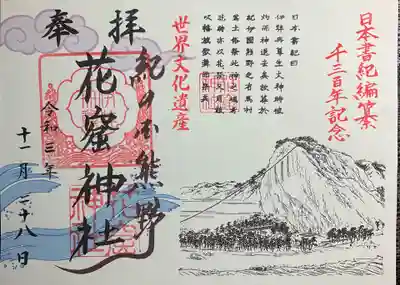 日本書紀編纂
千三百年記念
日本書紀曰
伊弉冉尊生火神時被
灼而神退去矣故葬於
紀伊國熊野之有馬村
焉土俗祭此神之魂者
花時亦以花祭又用鼓
吹幡旗歌舞而祭矣
世界文化遺産
奉拝
紀の国熊野
花窟神社
令和三年
十一月二十八日